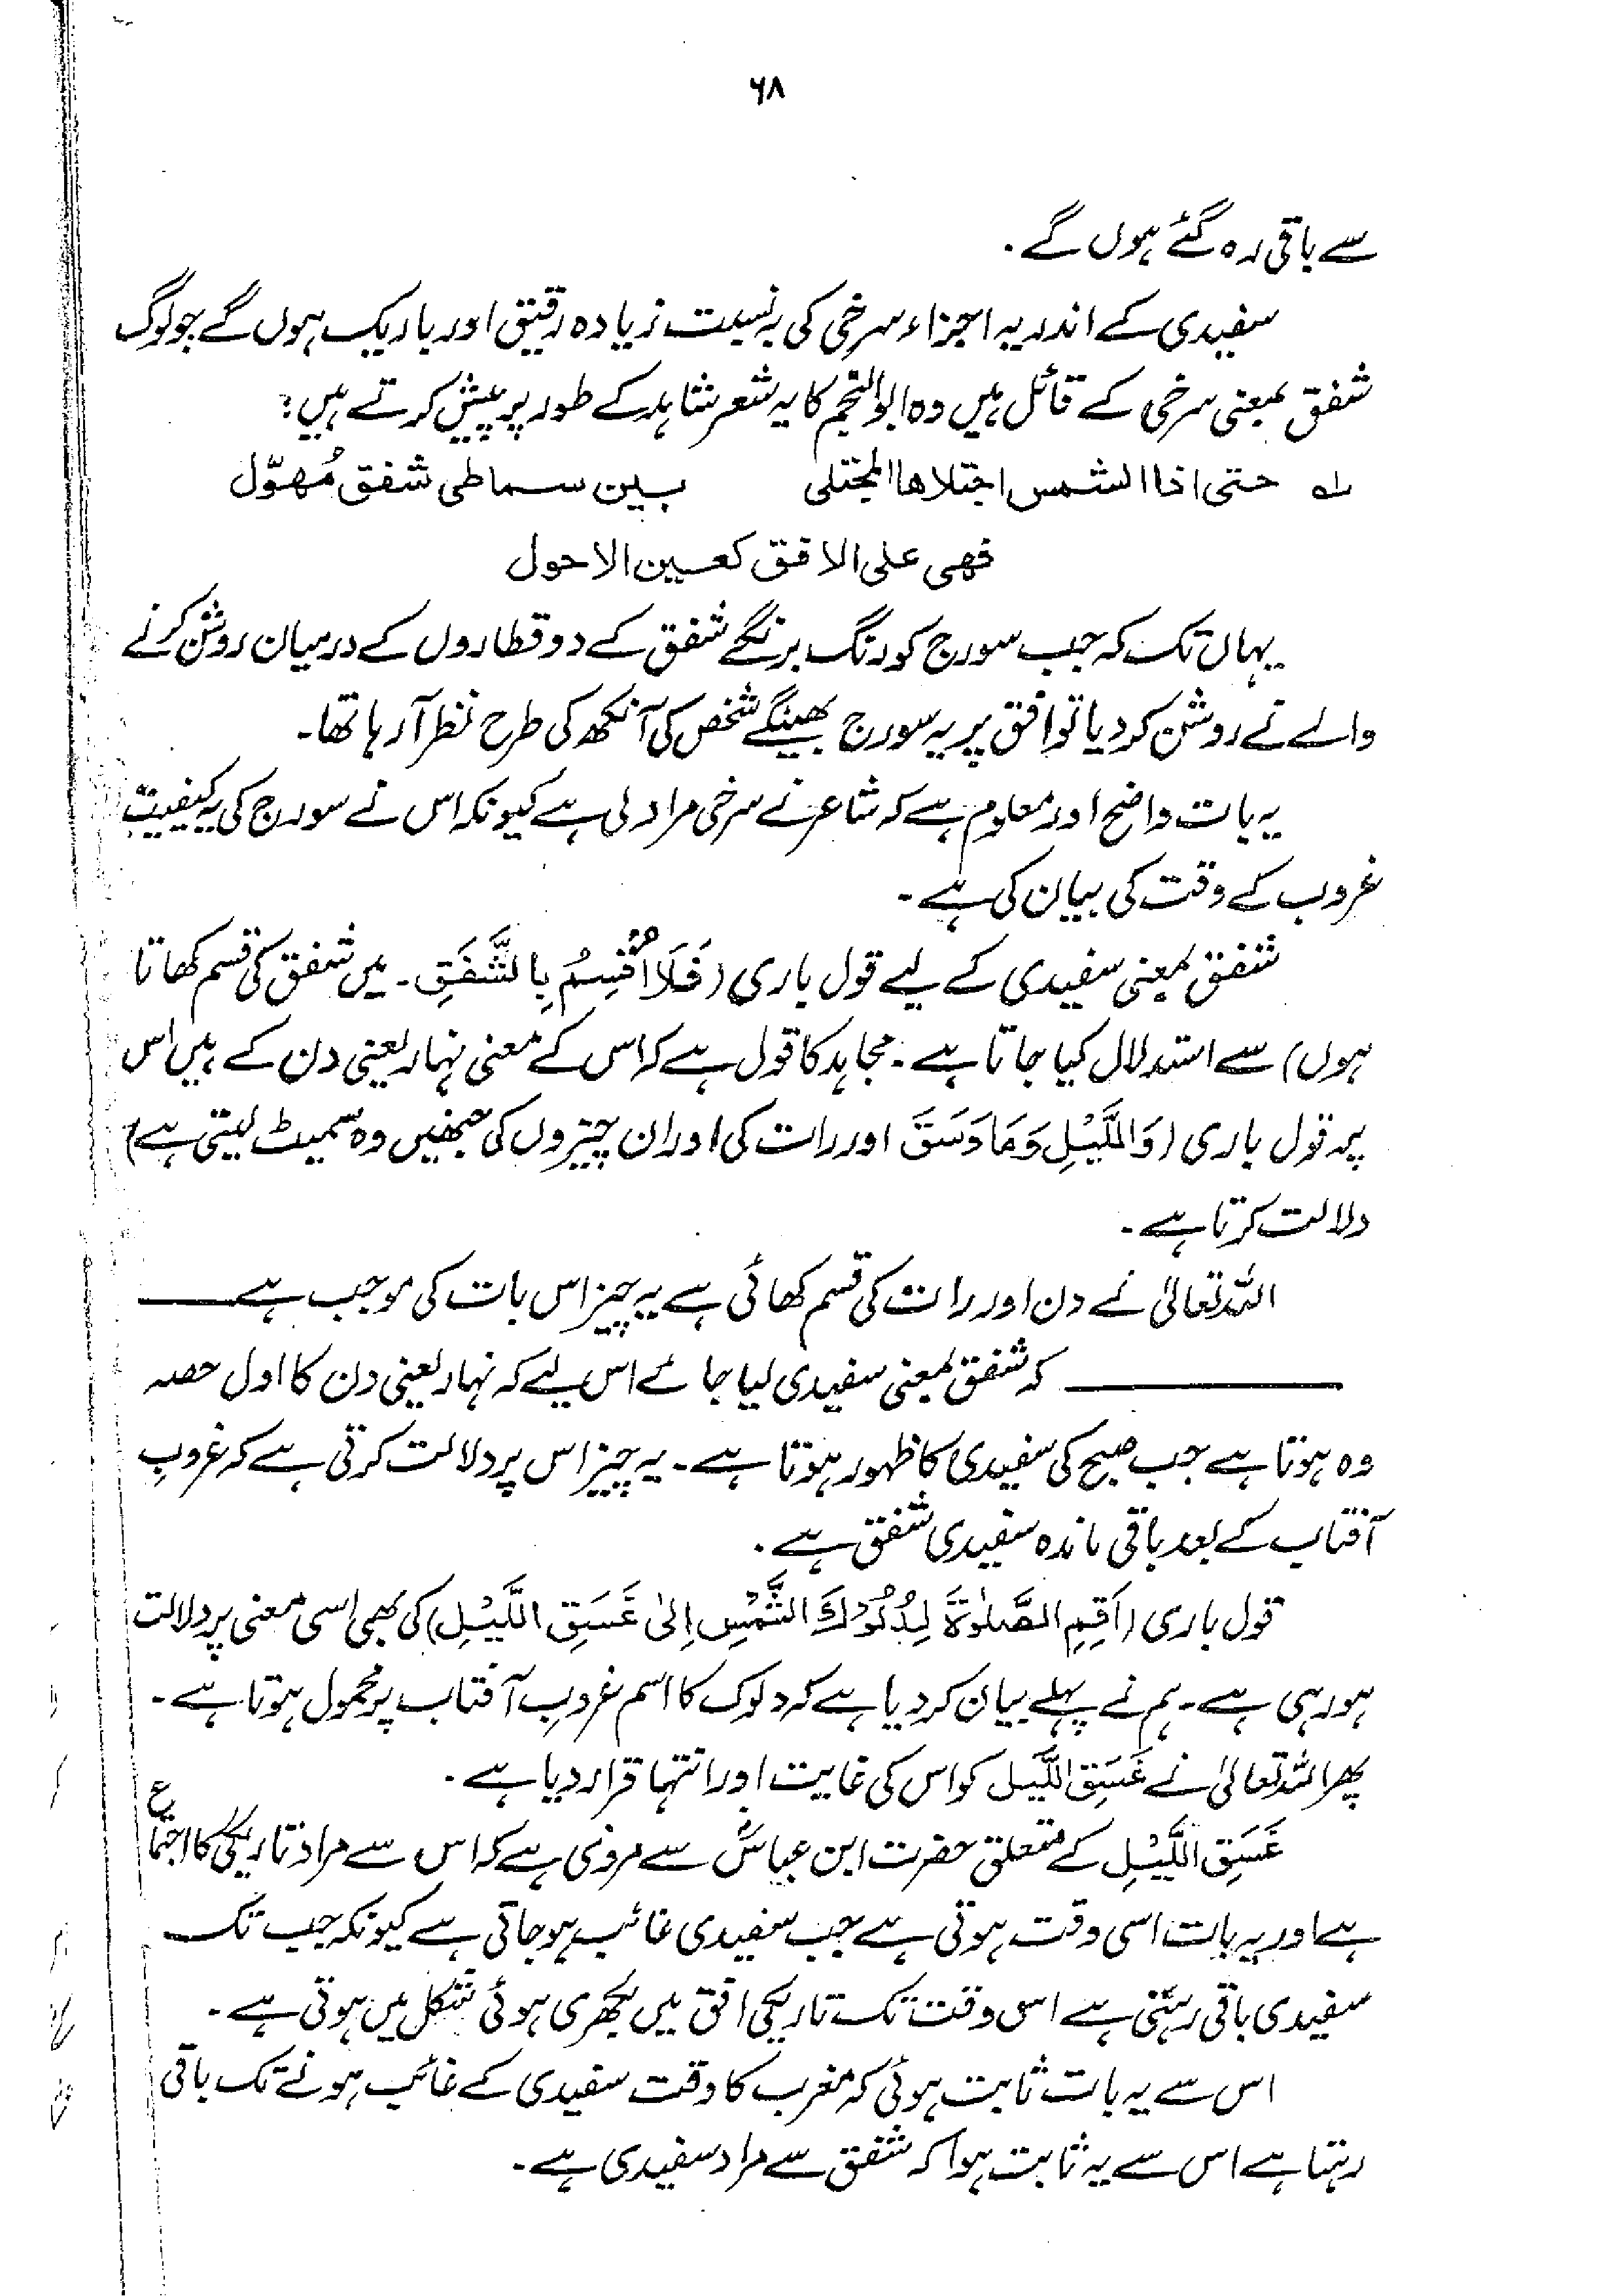 ۶۸
سے باقی رہ گئے ہوں گے۔
سفیدی کے اندر یہ اجزاء سرخی کی بہ نسبت زیادہ رقیق اور باریک ہوں گے جو لوگ
شفق بمعنی سرخی کے قائل ہیں وہ ابوالنجم کا یہ شعر شاہد کے طور پر پیش کرتے ہیں:
؎ حتی اذا الشمس اجتلاها المجتلی بین سماطی شفق مُهوّل
فهی علی الافق كعین الاحول
یہاں تک کہ جب سورج کو رنگ برنگے شفق کے دو قطاروں کے درمیان روشن کرنے
والے نے روشن کر دیا تو افق پر یہ سورج بھینگے شخص کی آنکھ کی طرح نظر آ رہا تھا۔
یہ بات واضح اور معلوم ہے کہ شاعر نے سرخی مراد لی ہے کیونکہ اس نے سورج کی یہ کیفیت
غروب کے وقت کی بیان کی ہے۔
شفق بمعنی سفیدی کے لیے قول باری (فَلَا اُقْسِمُ بِالشَّفَقِ۔ میں شفق کی قسم کھاتا
ہوں) سے استدلال کیا جاتا ہے۔ مجاہد کا قول ہے کہ اس کے معنی نہار یعنی دن کے ہیں اس
پر قول باری (وَاللَّيْلِ وَمَا وَسَقَ اور رات کی اور ان چیزوں کی جنھیں وہ سمیٹ لیتی ہے)
دلالت کرتا ہے۔
اللہ تعالیٰ نے دن اور رات کی قسم کھائی ہے یہ چیز اس بات کی موجب ہے ــــــ
ــــــــــــ کہ شفق بمعنی سفیدی لیا جائے اس لیے کہ نہار یعنی دن کا اول حصہ
وہ ہوتا ہے جب صبح کی سفیدی کا ظہور ہوتا ہے۔ یہ چیز اس پر دلالت کرتی ہے کہ غروبِ
آفتاب کے بعد باقی ماندہ سفیدی شفق ہے۔
قول باری (اَقِمِ الصَّلٰوةَ لِدُلُوْكِ الشَّمْسِ اِلیٰ غَسَقِ اللَّيْلِ) کی بھی اسی معنی پر دلالت
ہو رہی ہے۔ ہم نے پہلے بیان کر دیا ہے کہ دلوک کا اسم غروبِ آفتاب پر محمول ہوتا ہے۔
پھر اللہ تعالیٰ نے غَسَقِ اللَّيل کو اس کی غایت اور انتہا قرار دیا ہے۔
غَسَقِ اللَّيْلِ کے متعلق حضرت ابن عباسؓ سے مروی ہے کہ اس سے مراد تاریکی کا اجتماع
ہے اور یہ بات اسی وقت ہوتی ہے جب سفیدی غائب ہو جاتی ہے کیونکہ جب تک
سفیدی باقی رہتی ہے اس وقت تک تاریکی افق میں بکھری ہوئی شکل میں ہوتی ہے۔
اس سے یہ بات ثابت ہوئی کہ مغرب کا وقت سفیدی کے غائب ہونے تک باقی
رہتا ہے اس سے یہ ثابت ہوا کہ شفق سے مراد سفیدی ہے۔